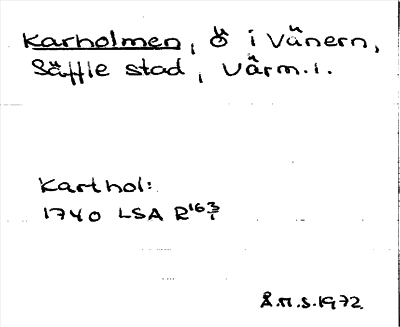 Karholmen, ö i Vänern,
Säffle stad, Värm.l.
Karthol:
1740 LSA R16 3/1
Å.M.S.1972